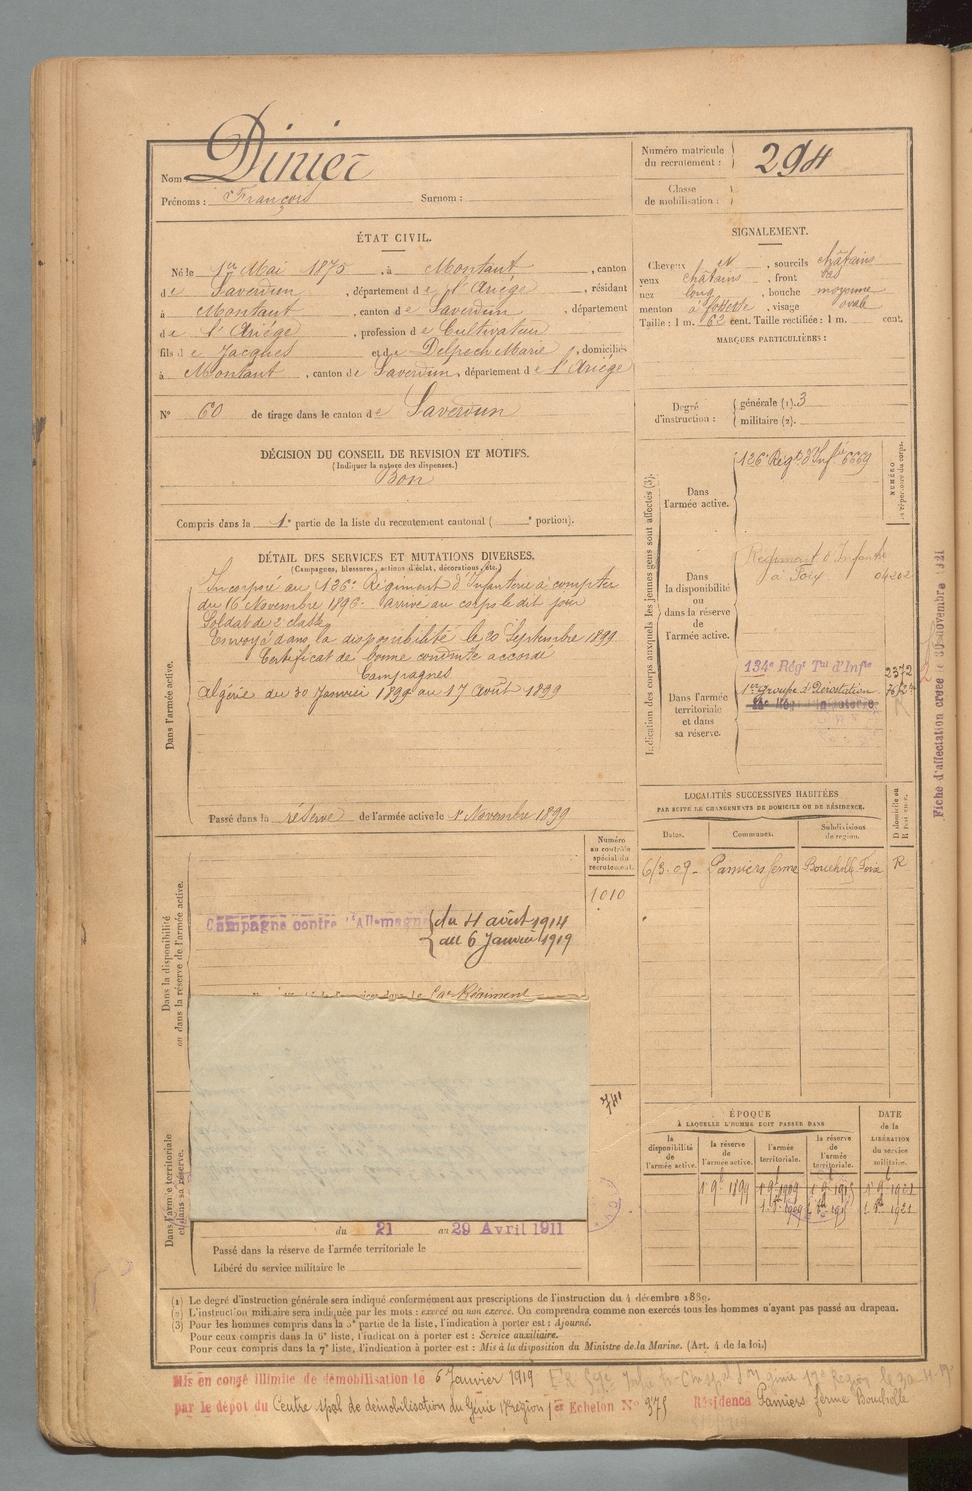 Nom : Dinier
Prénoms : François Surnom :
Numéro matricule du recrutement : 294
Classe de mobilisation :
ÉTAT CIVIL.
Né le 1er Mai 1875, à Montaut, canton
de Saverdun, département de l'Ariége, résidant
à Montaut, canton de Saverdun, département
de l'Ariége, profession de Cultivateur
fils de Jacques et de Delpech Marie, domiciliés
à Montaut, canton de Saverdun, département de l'Ariége
N° 60 de tirage dans le canton de Saverdun
DÉCISION DU CONSEIL DE REVISION ET MOTIFS.
(Indiquer la nature des dispenses.)
Bon
Compris dans la 1e partie de la liste du recrutement cantonal ( e portion).
SIGNALEMENT.
Cheveux N, sourcils châtains
yeux châtains, front bas
nez long, bouche moyenne
menton à fossette, visage ovale
Taille : 1 m. 62 cent. Taille rectifiée : 1 m. cent.
MARQUES PARTICULIÈRES :
Degré d'instruction : générale (1). 3
militaire (2).
DÉTAIL DES SERVICES ET MUTATIONS DIVERSES.
(Campagnes, blessures, actions d'éclat, décorations, etc.)
Dans l'armée active.
Incorporé au 126e Régiment d'Infanterie à compter
du 16 Novembre 1896. Arrivé au corps le dit jour
Soldat de 2e classe
Envoyé dans la disponibilité le 20 Septembre 1899
Certificat de bonne conduite accordé
Campagnes
Algérie du 30 Janvier 1899 au 17 Août 1899
Passé dans la réserve de l'armée active le 1r Novembre 1899
Indication des corps auxquels les jeunes gens sont affectés (3).
NUMÉRO au répertoire du corps.
Dans l'armée active.
126e Régt d'Infie 6669
Dans la disponibilité ou dans la réserve de l'armée active.
Régiment d'Infanterie
à Foix 04202
Dans l'armée territoriale et dans sa réserve.
134e Régt Tal d'Infie 2372
1er groupe d'Aérostation
Fiche d'affectation créée le 30 novembre 1921
LOCALITÉS SUCCESSIVES HABITÉES
PAR SUITE DE CHANGEMENTS DE DOMICILE OU DE RÉSIDENCE.
Dates. Communes. Subdivisions de région. D domicile ou R résidence.
6/3.09 - Pamiers ferme Foix R
Dans la disponibilité ou dans la réserve de l'armée active.
Numéro au contrôle spécial du recrutement.
1010
Campagne contre l'Allemagne du 4 août 1914
au 6 Janvier 1919
741
Dans l'armée territoriale et dans sa réserve.
du 21 au 29 Avril 1911
Passé dans la réserve de l'armée territoriale le
Libéré du service militaire le
ÉPOQUE
À LAQUELLE L'HOMME DOIT PASSER DANS
DATE de la LIBÉRATION du service militaire.
la disponibilité de l'armée active. la réserve de l'armée active. l'armée territoriale. la réserve de l'armée territoriale.
1r 9bre 1899 1r 9bre 1909 1r 9bre 1915 1r 9bre 1921
(1) Le degré d'instruction générale sera indiqué conformément aux prescriptions de l'instruction du 4 décembre 1889.
(2) L'instruction militaire sera indiquée par les mots : exercé ou non exercé. On comprendra comme non exercés tous les hommes n'ayant pas passé au drapeau.
(3) Pour les hommes compris dans la 5e partie de la liste, l'indication à porter est : Ajourné.
Pour ceux compris dans la 6e liste, l'indication à porter est : Service auxiliaire.
Pour ceux compris dans la 7e liste, l'indication à porter est : Mis à la disposition du Ministre de la Marine. (Art. 4 de la loi.)
Mis en congé illimité de démobilisation le 6 Janvier 1919
par le dépôt du Centre spal de démobilisation du Génie 17e région 1er Echelon N° 375 Résidence Pamiers ferme